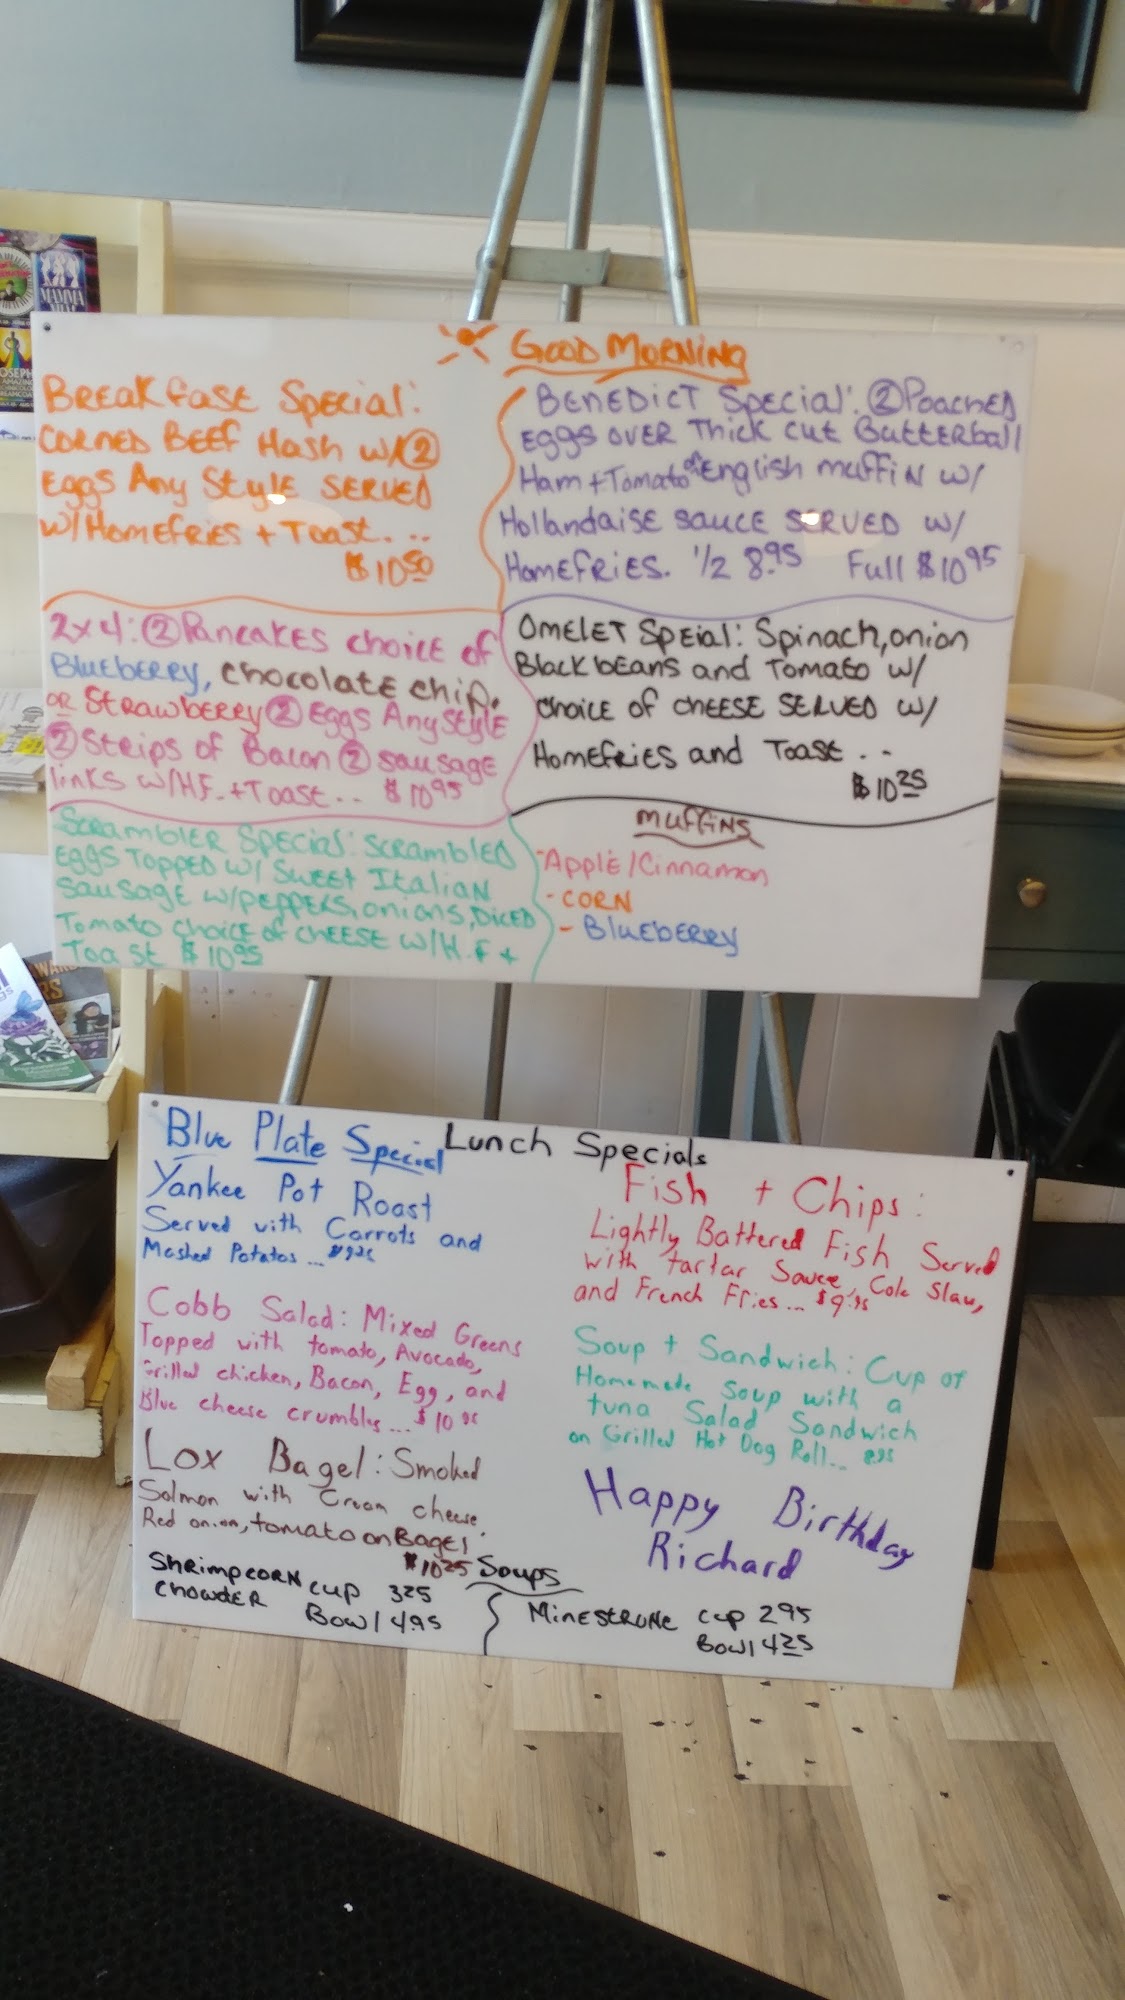 MAMMA
GOOD MORNING
BREAKFAST SPECIAL:
CORNED BEEF HASH W/②
EGGS ANY STYLE SERVED
W/HOMEFRIES + TOAST. ..
$10 50
BENEDICT SPECIAL: ② POACHED
EGGS OVER THICK CUT BUTTERBALL
HAM + TOMATO on ENGLISH MUFFIN W/
HOLLANDAISE SAUCE SERVED W/
HOMEFRIES. 1/2 8.95 FULL $10 95
2x4: ② PANCAKES CHOICE OF
BLUEBERRY, CHOCOLATE CHIP,
OR STRAWBERRY ② EGGS ANY STYLE
② STRIPS OF BACON ② SAUSAGE
LINKS W/H.F. + TOAST... $10 95
OMELET SPEIAL: SPINACH, ONION
BLACK BEANS AND TOMATO W/
CHOICE OF CHEESE SERVED W/
HOMEFRIES AND TOAST . .
$10 25
SCRAMBLER SPECIAL: SCRAMBLED
EGGS TOPPED W/ SWEET ITALIAN
SAUSAGE W/PEPPERS, ONIONS, DICED
TOMATO CHOICE OF CHEESE W/H.F +
TOAST $10 95
MUFFINS
-APPLE/CINNAMON
- CORN
- BLUEBERRY
Blue Plate Special
Lunch Specials
Yankee Pot Roast
Served with Carrots and
Mashed Potatos ... $9.25
Fish + Chips:
Lightly Battered Fish Served
with tartar Sauce, Cole Slaw,
and French Fries... $9.95
Cobb Salad: Mixed Greens
Topped with tomato, Avocado,
Grilled chicken, Bacon, Egg, and
Blue cheese crumbles ... $10 95
Soup + Sandwich: Cup of
Homemade Soup with a
tuna Salad Sandwich
on Grilled Hot Dog Roll... 8.95
Lox Bagel: Smoked
Salmon with Cream cheese,
Red onion, tomato on Bagel
$10 25
Happy Birthday
Richard
Soups
SHRIMP CORN CUP 3 25
CHOWDER BOWL 4.95
MINESTRONE CUP 2 95
BOWL 4 25